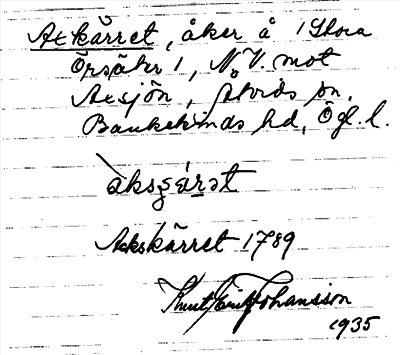 Axkärret, åker å 1 Stora
Örsäkr 1, N.V. mot
Axsjön, Åtvids sn,
Bankekinds hd, Ögl.
àksçä́rət
Ackskärret 1789
Knut Erik Johansson
1935